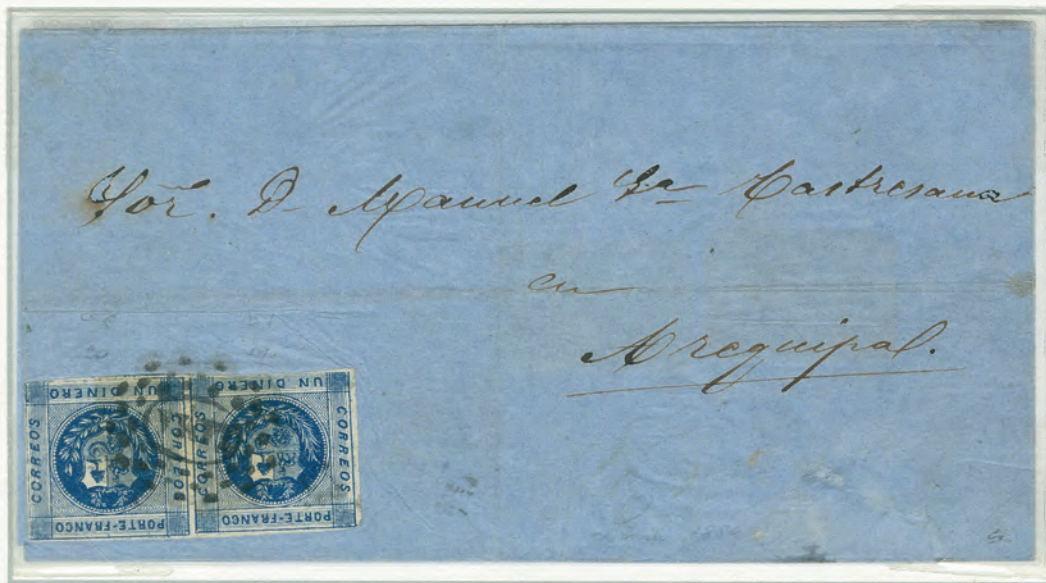 Sor. D. Manuel Ga Castresana
en
Arequipa.
CORREOS UN DINERO CORREOS PORTE-FRANCO
CORREOS UN DINERO CORREOS PORTE-FRANCO